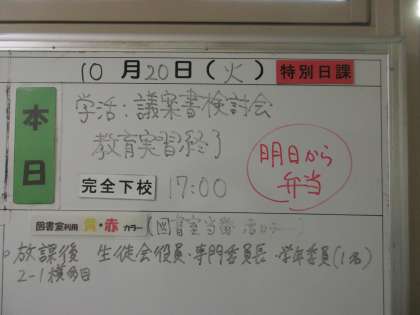 10月20日(火) 特別日課
本日
学活:議案書検討会
教育実習終了
明日から
弁当
完全下校 17:00
図書室利用 黄・赤 カラー (図書室当番
放課後 生徒会役員・専門委員長・学年委員(1名)
2-1